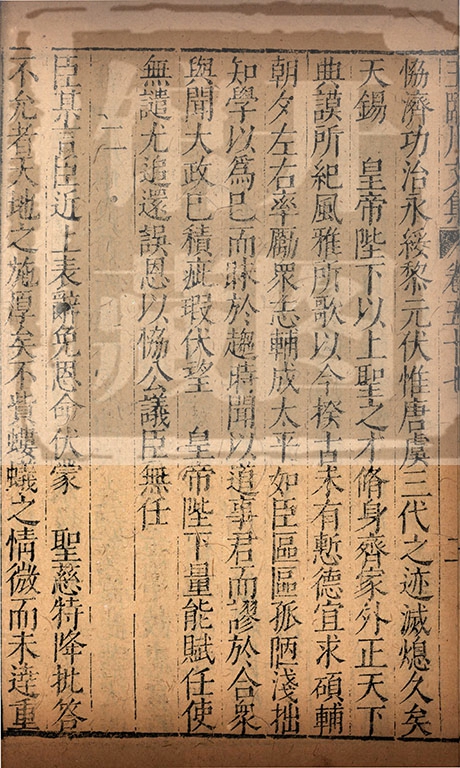 王臨川文集 卷五十七 二
恊濟功治永綏黎元伏惟唐虞三代之迹滅熄久矣
天錫 皇帝陛下以上聖之才脩身齊家外正天下
典謨所紀風雅所歌以今揆古未有慙德宜求碩輔
朝夕左右率勵衆志輔成太平如臣區區孤陋淺拙
知學以爲已而昧於趨時聞以道事君而謬於合衆
與聞大政已積疵瑕伏望 皇帝陛下量能賦任使
無譴尤追還誤恩以恊公議臣無任
二
臣某言臣近上表辭免恩命伏蒙 聖慈特降批答
不允者天地之施厚矣不費螻蟻之情微而未達重